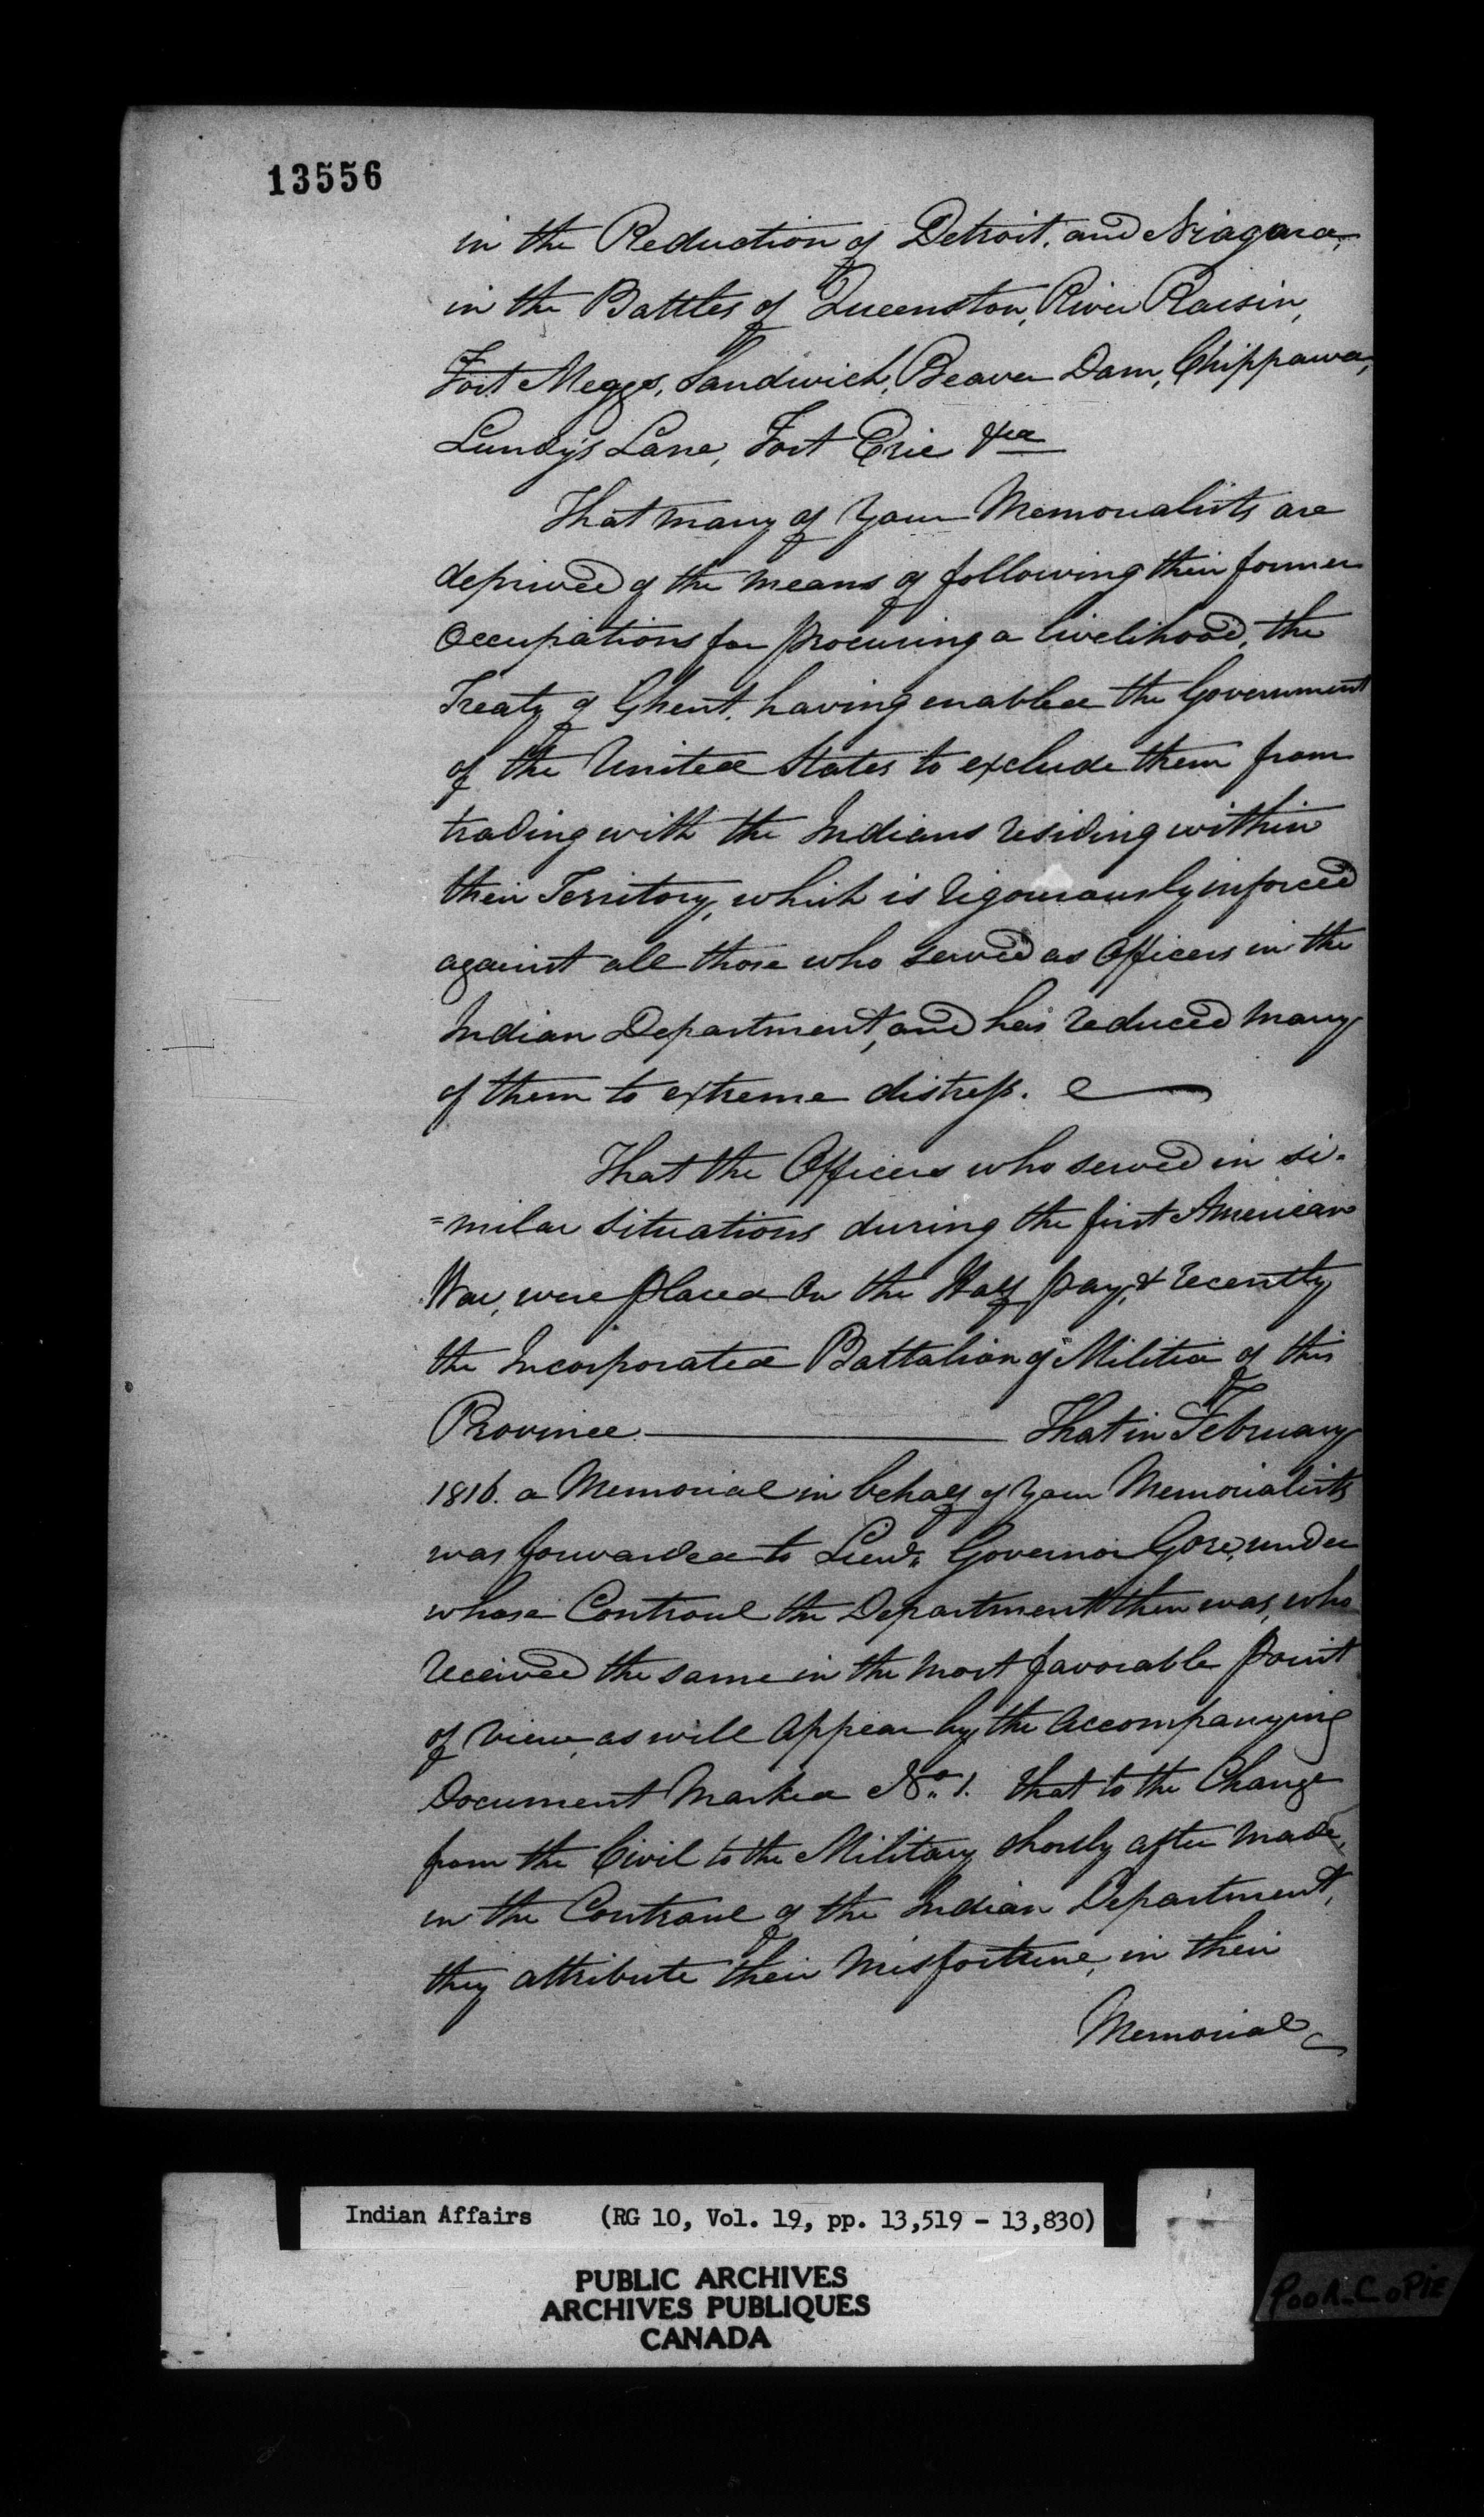 13556
in the Reduction of Detroit, and Niagara,
in the Battles of Queenston, River Raisin,
Fort Meggs, Sandwich, Beaver Dam, Chippawa,
Lundy's Lane, Fort Erie &ca
That many of Your Memorialists are
deprived of the means of following their former
Occupations for procuring a livelihood, the
Treaty of Ghent, having enabled the Government
of the United States to exclude them from
trading with the Indians residing within
their Territory, which is rigourously inforced
against all those who served as Officers in the
Indian Department, and has reduced many
of them to extreme distress.
That the Officers who served in si-
=milar situations during the first American
War, were placed on the Half pay, & recently
the Incorporated Battalion of Militia of this
Province. That in February
1816. a Memorial in behalf of Your Memorialists
was forwarded to Lieut. Governor Gore, under
whose Controul the Department then was, who
received the same in the most favorable point
of view, as will appear by the accompanying
Document Marked No. 1. that to the Change
from the Civil to the Military shortly after made,
in the Controul of the Indian Department,
they attribute their misfortune, in their
Memorial
Indian Affairs (RG 10, Vol. 19, pp. 13,519 - 13,830)
PUBLIC ARCHIVES
ARCHIVES PUBLIQUES
CANADA
POOR COPIE